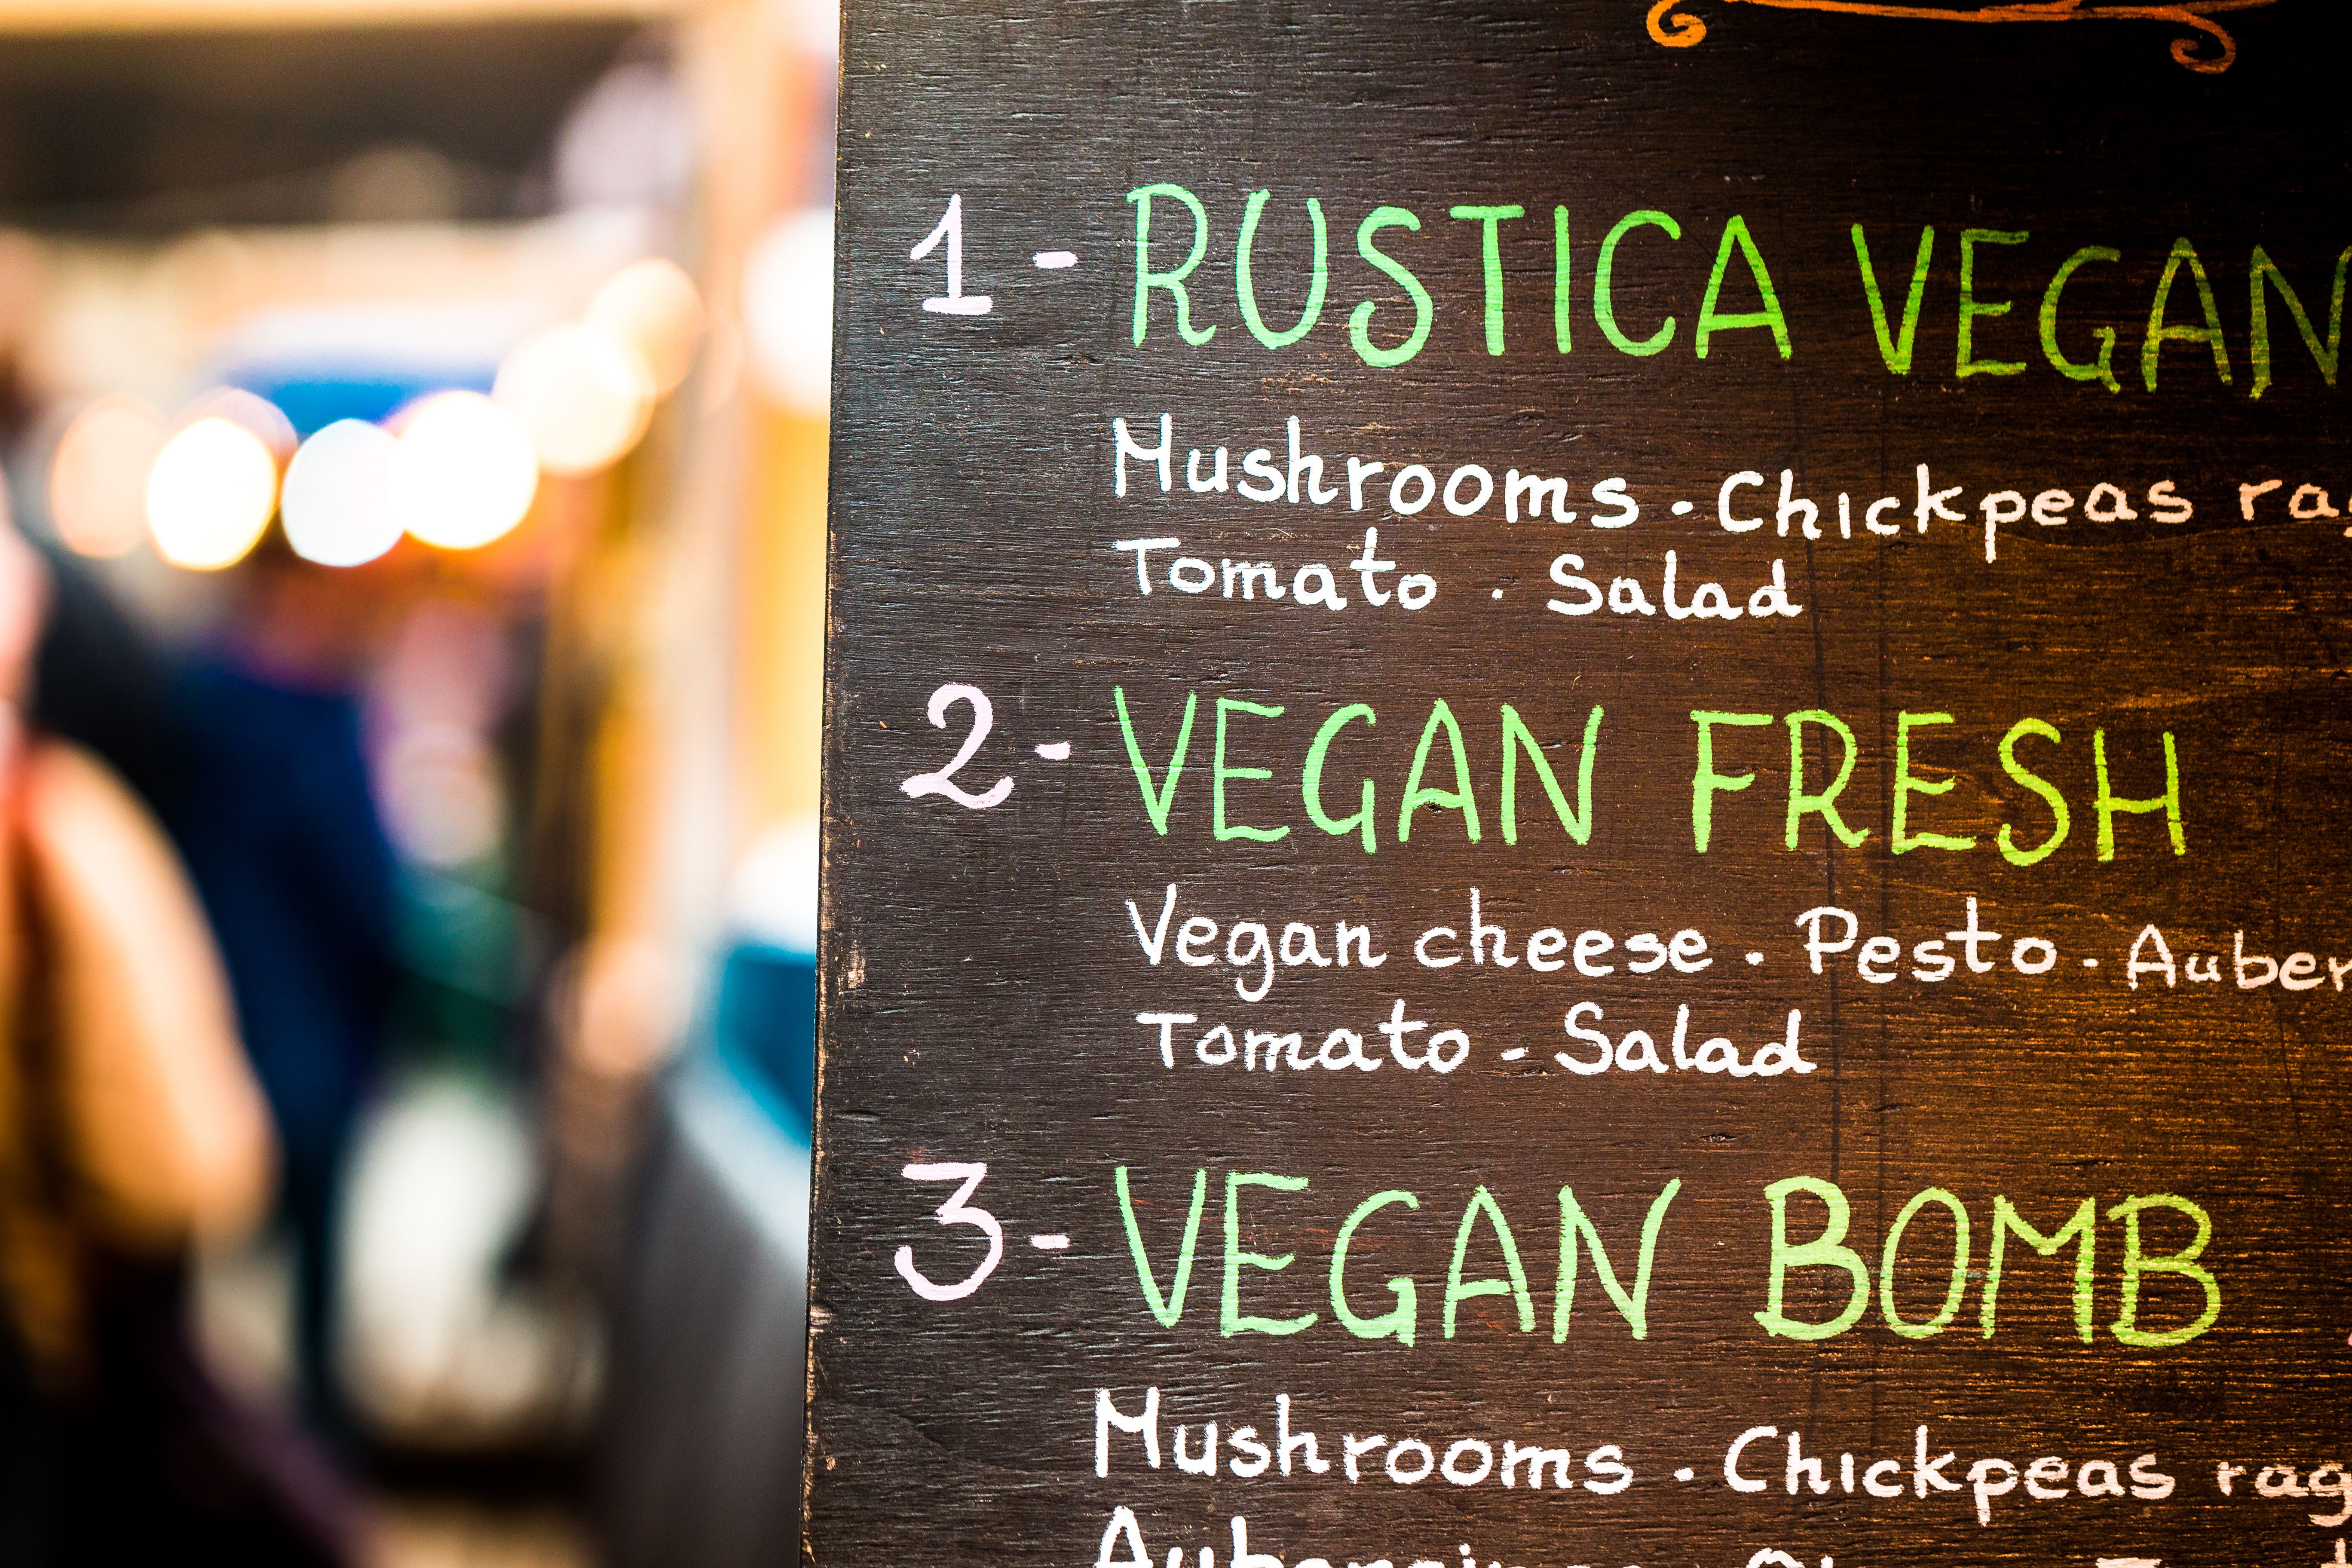 1 - RUSTICA VEGAN
Mushrooms . Chickpeas
Tomato . Salad
2 - VEGAN FRESH
Vegan cheese . Pesto .
Tomato - Salad
3 - VEGAN BOMB
Mushrooms . Chickpeas